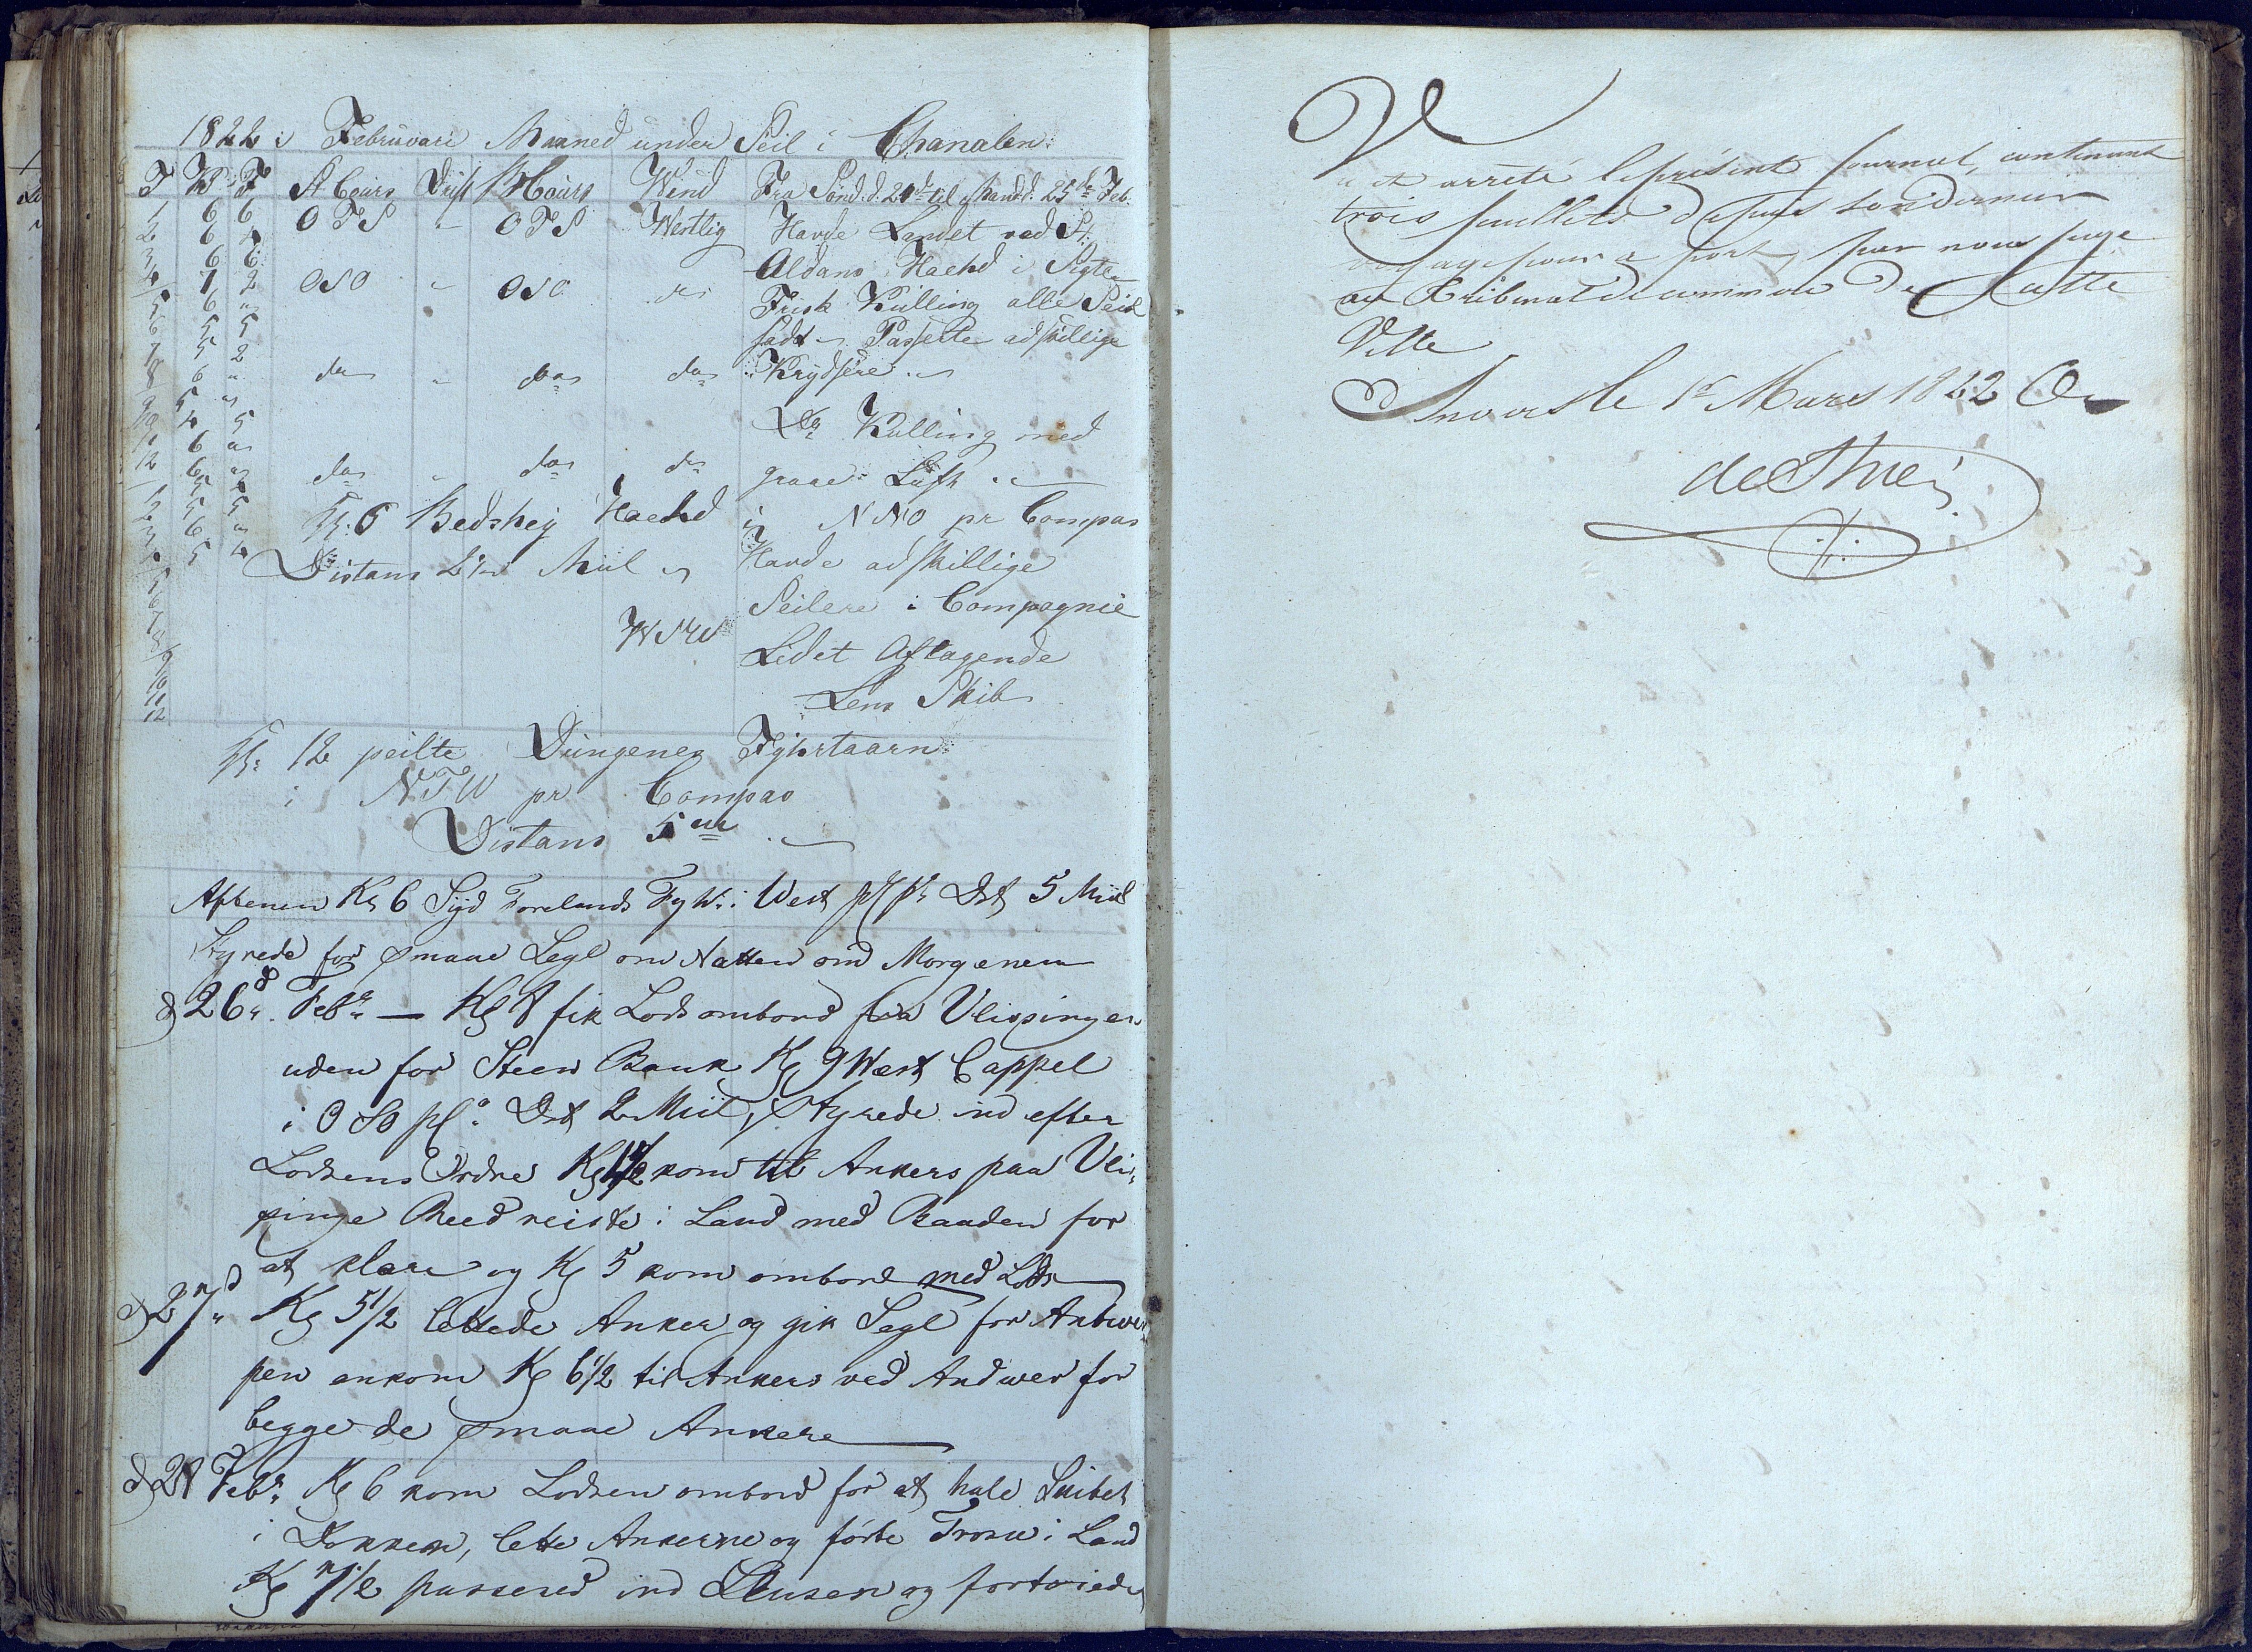 1822 i Februari Maaned under Seil i Chanalen:
T K F St Cours Drift B Cours Wind Fra Sønd. d. 24de til Mand. d. 25de Feb.
1 6 6 OTS " OTS Westlig Havde Landet ved St.
2 6 4
3 6 6 Aldans Haehd i Sigte
4 7 2 OSO " OSO do
5 6 " Frisk Kulling alle Seil
6 5 5 sadt Passerte adskillige
7 5 2
8 6 " do " do do Krydsere
9 5 "
10 4 5 Do Kulling med
11 6 "
12 6 " do " do do graae Luft
1 5 2
2 5 5 Kl. 6 Bedsheg Haehd i NNO pr Compas
3 6 "
4 5 4 Distans 2 1/2 Miil Havde adskillige
5
6 Seilere i Compagnie
7 WSW
8 Lidet Aftagende
9
10 Lens Skib
11
12
Kl: 12 peilte Dungenes Fyhrtaarn
i NTW pr Compas
Distans 5 m
Aftenen Kl 6 Syd Forelands Fyhr i West pr Dst 5 Miil
Styrede for smaae Segl om Natten om Morgenen
d 26d Febr — Kl 8 fik Lods ombord fra Vlissingen
uden for Steen Bank Kl 9 West Cappel
i OSO Dst 2 Miil, Styrede ind efter
Lodsens Ordre Kl kom til Ankers paa Vlis
singe Reed reiste i Land med Baaden for
at klare og Kl 5 kom ombord med Lods
d 27d Kl 5 1/2 lettede Anker og gik Segl for Antwer
pen ankom Kl 6 1/2 til Ankers ved Andwer for
begge de smaae Ankere
d 28 Febr Kl 6 kom Lodsen ombord for at hale Skibet
i Dokken, lette Ankerne og förte Trosse i Land
Kl 7 1/2 passered ind Slusen og fortøiede
Vu et arrêté le présent journal, contenant
trois feuillets depuis son dernier
voyage pour ce port, par nous juge
au Tribunal de commerce de Cette
Ville
Anvers le 1r Mars 1822